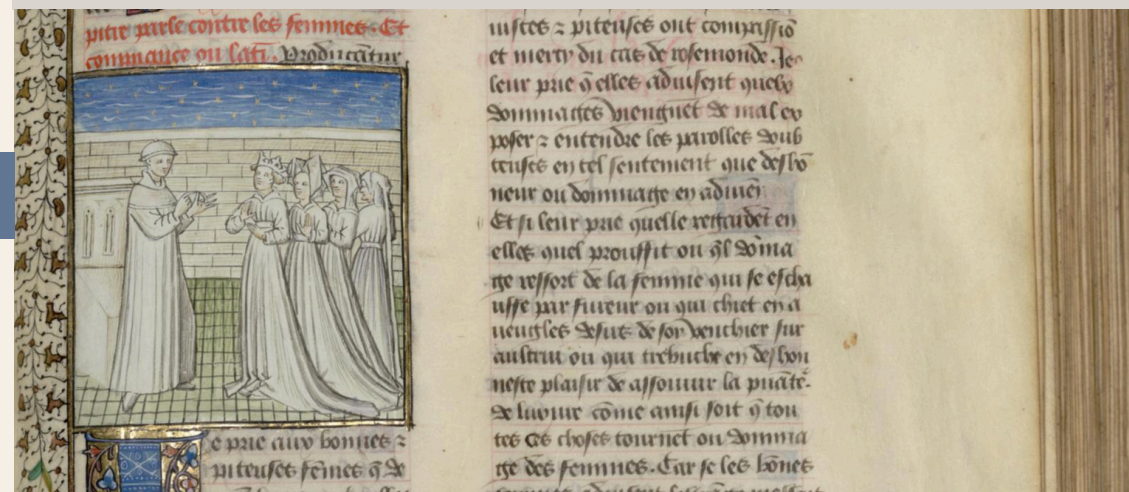 pitre parle contre les femmes. Et
commance ou lati. Producātur
e prie aux bonnes ⁊
piteuses fēmes q̄ de
iustes ⁊ piteuses ont compassiō
et mercy du cas de rosemonde. Je
leur prie q̄ elles aduisent quelx
dommages viengnēt de mal ex
poser ⁊ entendre les parolles doub
teuses en tel sentement que deshō
neur ou dommage en aduien
Et si leur prie quelle regardēt en
elles quel prouffit ou q̄l dōma
ge ressort de la femme qui se escha
uffe par fureur ou qui chiet en a
ueugles desirs de soy venchier sur
aultruy ou qui trebuche en deshon
neste plaisir de assouuir la puāte
de luxure cōme ainsi soit q̄ tou
tes ces choses tournēt ou domma
ge des femmes. Car se les bōnes